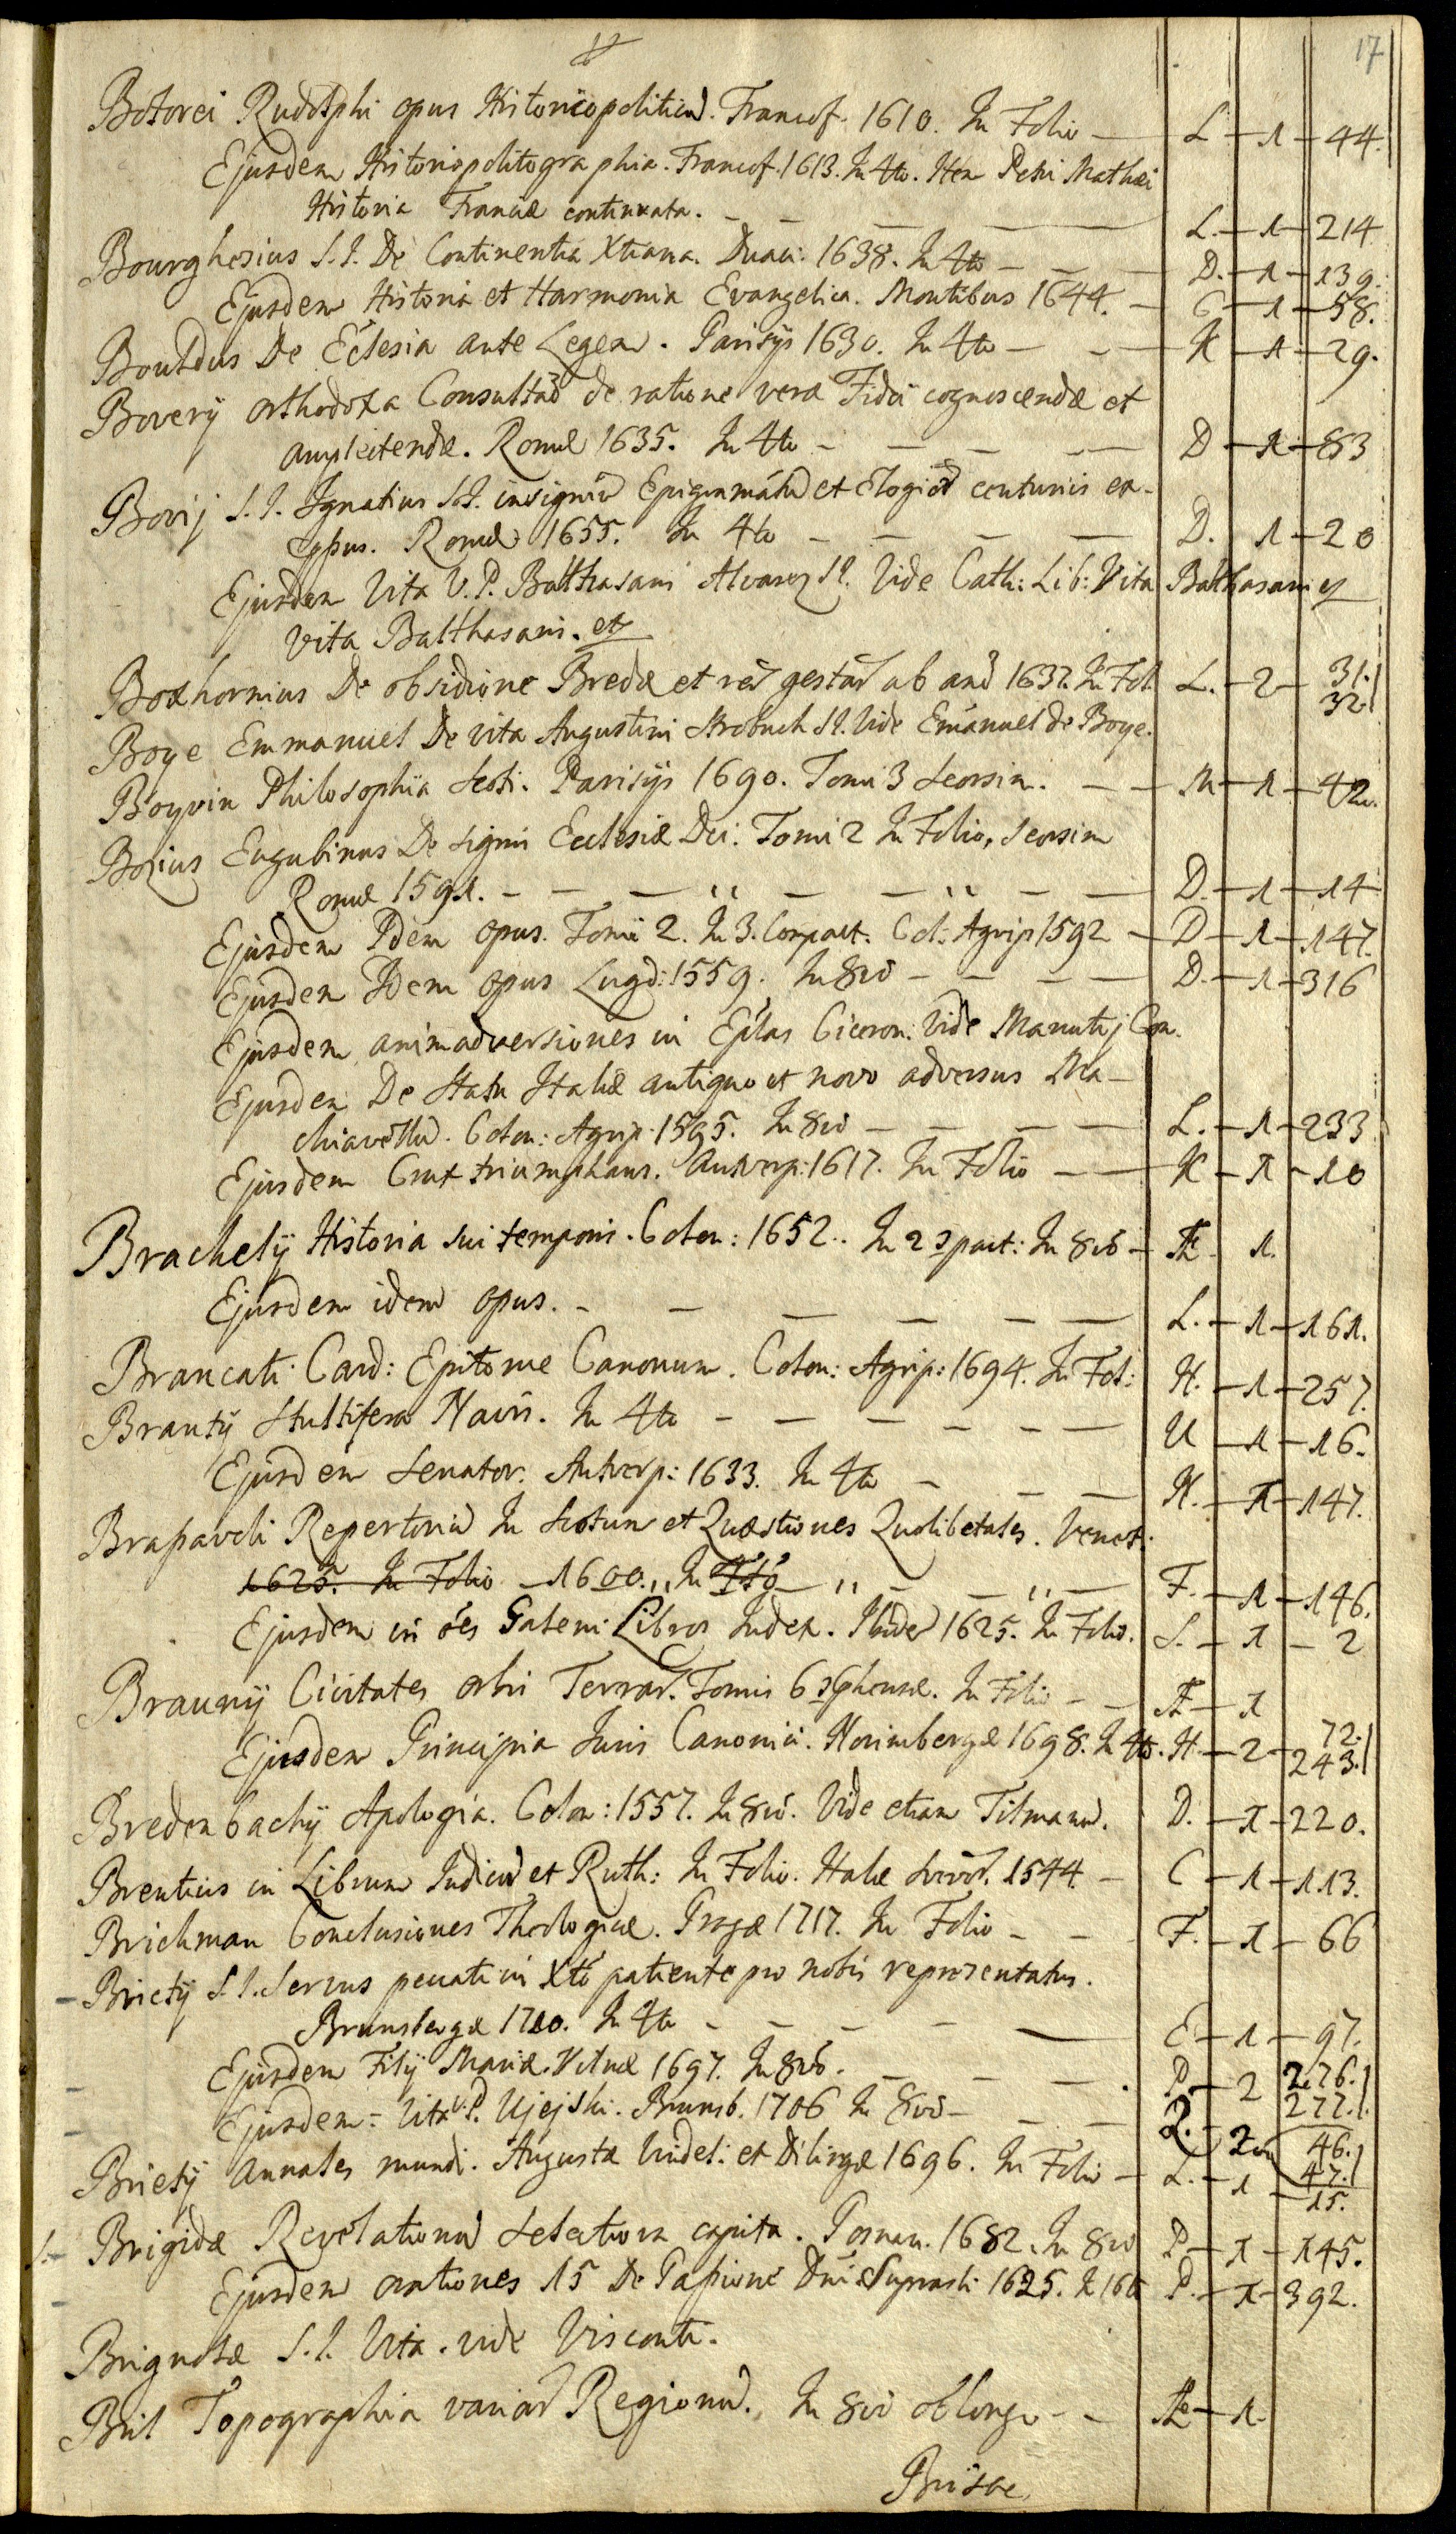 17
Botorei Rudolphi opus Historicopoliticũ. Francof. 1610. In Folio — L — 1 — 44.
Ejusdem Historiopolitographia. Francof. 1613. In 4to. Item Petri Mathæi
Historia Franciæ continuata. — — — — L. — 1 — 214
Bourghesius S.J. De Continentia Xtiana. Duaci: 1638. In 4to — — — D. — 1 — 139.
Ejusdem Historia et Harmonia Evangelica. Montibus 1644. — C — 1 — 58.
Boulduc De Ecclesia ante Legem. Parisijs 1630. In 4to — — — K — 1 — 29.
Boverÿ orthodoxa Consultãõ de ratione veræ Fidei cognoscendæ et
amplectendæ. Romæ 1635. In 4to — — — — D — 1 — 83
Bovij S.J. Ignatius S.J. insigniũ Epigrammatũ et Elogiorũ centurijs ex-
pressus. Romæ 1655. In 4to — — — — D. 1 — 20
Ejusdem Vita V.P. Balthasaris Alvarez SJ. Vide Cath: Lib: Vita Balthasaris et
Vita Balthasaris. et
Boxhornius De obsidione Bredæ et rerũ gestarũ ab anõ 1637. In Fol. L. — 2 — 31.
32.
Boye Emmanuel De vita Augustini Strobach SJ. Vide Emanuel de Boye.
Boyvin Philosophia Scoti. Parisijs 1690. Tomi 3 seorsim. — — M — 1 — 42.
Bozius Eugubinus De signis Ecclesiæ Dei: Tomi 2 In Folio, seorsim
Romæ 1591. — — — " — — " — — D. — 1 — 14
Ejusdem Idem opus. Tomi 2. In 3. Compact. Col: Agrip 1592 — D — 1 — 147.
Ejusdem Idem opus Lugd: 1559. In 8vo — — — — D. — 1 — 316
Ejusdem animadversiones in Eplas Ciceron: Vide Manutij Com.
Ejusdem De Statu Italiæ antiquo et novo adversus Ma-
chiavellũ. Colon: Agrip: 1595. In 8vo — — — — L. — 1 — 233
Ejusdem Crux triumphans. Antverp: 1617. In Folio — — K — 1 — 10
Brachelÿ Historia sui temporis. Colon: 1652. In 2 part: In 8vo — 1.
Ejusdem idem opus. — — — — — — L. — 1 — 161.
Brancati Card: Epitome Canonum. Colon: Agrip: 1694. In Fol: H. — 1 — 257.
Brantÿ Stultifera Navis. In 4to — — — — — — U — 1 — 16.
Ejusdem Senator. Antverp: 1633. In 4to — — — N. — 1 — 147.
Brasavoli Repertoriũ In Scotum et Quæstiones Quolibetales. Venet:
1625. In Folio — 1600. " In 4to — " — — " — F. — 1 — 146.
Ejusdem in oes Galeni Libros Index. Ibidem 1625. In Folio. S. — 1 — 2
Braunij Civitates orbis Terrar. Tomis 6 In Folio — — — 1
Ejusdem Principia Juris Canonici. Norimbergæ 1698. In 4to. H. — 2 — 72.
243.
Bredenbachÿ Apologia. Colon: 1557. In 8vo. Vide etiam Tilmanũ. D. — 1 — 220.
Brentius in Librum Judicũ et Ruth: In Folio. Halæ Svevor. 1544. — C — 1 — 113.
Brickman Conclusiones Theologicæ. Pragæ 1717. In Folio — — F. — 1 — 66
— Brictÿ S.J. Servus peccati in Xto patiente pro nobis repræsentatus.
Brunsbergæ 1720. In 4to — — — — — E — 1 — 97.
— Ejusdem Filÿ Mariæ. Vilnæ 1697. In 8vo. — — — P. — 2 276.
277.
— Ejusdem — Vita V.P. Ujejski. Brunsb. 1706 In 8vo — — — Q. — 2 46.
47.
Brietÿ Annales mundi. Augustæ Vindel: et Dilingæ 1696. In Folio — L. — 1 — 15.
Brigidæ Revelationũ selectiora capita. Posnan. 1682. In 8vo P — 1 — 145.
— Ejusdem orationes 15 De Passione Dni Suprasli 1625. In 16to P. — 1 — 392.
Brignolæ S.J. Vita. vide Visconti.
Bril Topographia variar Regionũ. In 8vo oblongo — — — 1.